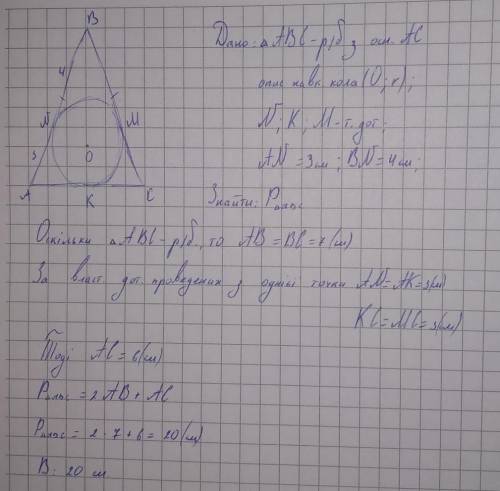 B
4
N
M
3
O
A
K
C
Дано: △ABC - р/б з осн. AC
опис навк. кола (O; r);
N; K; M - т. дот.
AN = 3 см; BN = 4 см;
Знайти: P
Оскільки △ABC - р/б, то AB = BC = 7 (см)
За власт. дот. проведених з однієї точки AN = AK = 3 (см)
KC = MC = 3 (см)
Тоді AC = 6 (см)
P = 2AB + AC
P = 2 · 7 + 6 = 20 (см)
В: 20 см.